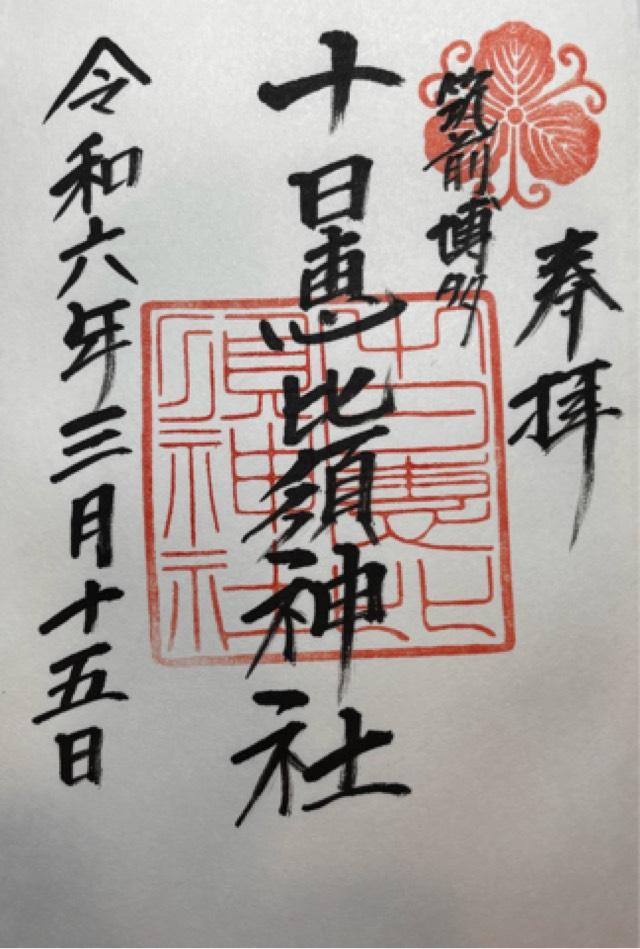 奉拝
筑前博多
十日恵比須神社
十日恵比須神社
令和六年三月十五日